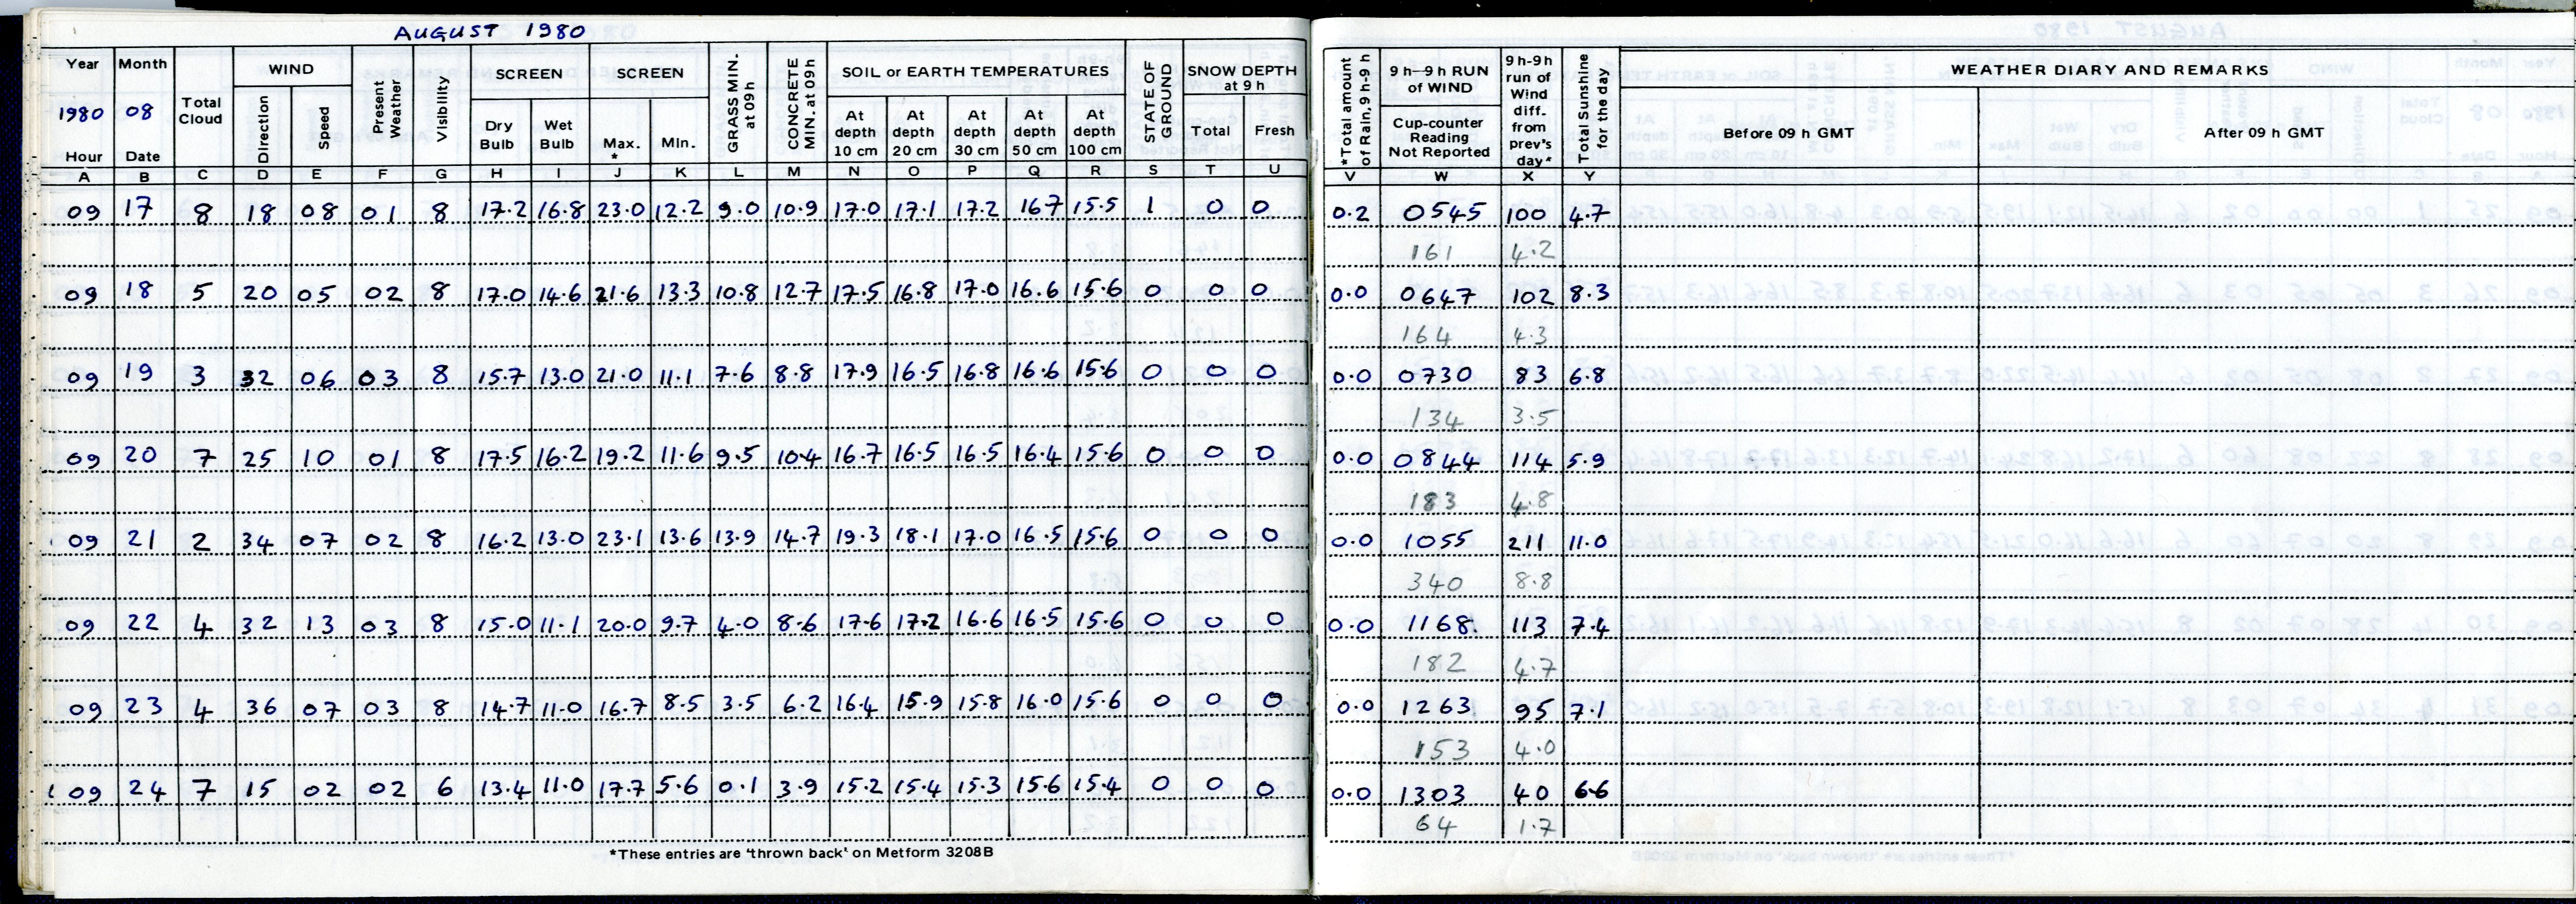 AUGUST 1980
Year Month Total Cloud WIND Direction Speed Present Weather Visibility SCREEN Dry Bulb Wet Bulb SCREEN Max. * Min. GRASS MIN. at 09h CONCRETE MIN. at 09h SOIL or EARTH TEMPERATURES At depth 10 cm At depth 20 cm At depth 30 cm At depth 50 cm At depth 100 cm STATE OF GROUND SNOW DEPTH at 9 h Total Fresh *Total amount of Rain, 9h-9h 9h–9h RUN of WIND Cup-counter Reading Not Reported 9h-9h run of Wind diff. from prev's day* *Total Sunshine for the day WEATHER DIARY AND REMARKS Before 09 h GMT After 09 h GMT
1980 08
Hour Date
A B C D E F G H I J K L M N O P Q R S T U V W X Y
09 17 8 18 08 01 8 17.2 16.8 23.0 12.2 9.0 10.9 17.0 17.1 17.2 16.7 15.5 1 0 0 0.2 0545 100 4.7
161 4.2
09 18 5 20 05 02 8 17.0 14.6 21.6 13.3 10.8 12.7 17.5 16.8 17.0 16.6 15.6 0 0 0 0.0 0647 102 8.3
164 4.3
09 19 3 32 06 03 8 15.7 13.0 21.0 11.1 7.6 8.8 17.9 16.5 16.8 16.6 15.6 0 0 0 0.0 0730 83 6.8
134 3.5
09 20 7 25 10 01 8 17.5 16.2 19.2 11.6 9.5 10.4 16.7 16.5 16.5 16.4 15.6 0 0 0 0.0 0844 114 5.9
183 4.8
09 21 2 34 07 02 8 16.2 13.0 23.1 13.6 13.9 14.7 19.3 18.1 17.0 16.5 15.6 0 0 0 0.0 1055 211 11.0
340 8.8
09 22 4 32 13 03 8 15.0 11.1 20.0 9.7 4.0 8.6 17.6 17.2 16.6 16.5 15.6 0 0 0 0.0 1168 113 7.4
182 4.7
09 23 4 36 07 03 8 14.7 11.0 16.7 8.5 3.5 6.2 16.4 15.9 15.8 16.0 15.6 0 0 0 0.0 1263 95 7.1
153 4.0
09 24 7 15 02 02 6 13.4 11.0 17.7 5.6 0.1 3.9 15.2 15.4 15.3 15.6 15.4 0 0 0 0.0 1303 40 6.6
64 1.7
*These entries are 'thrown back' on Metform 3208B